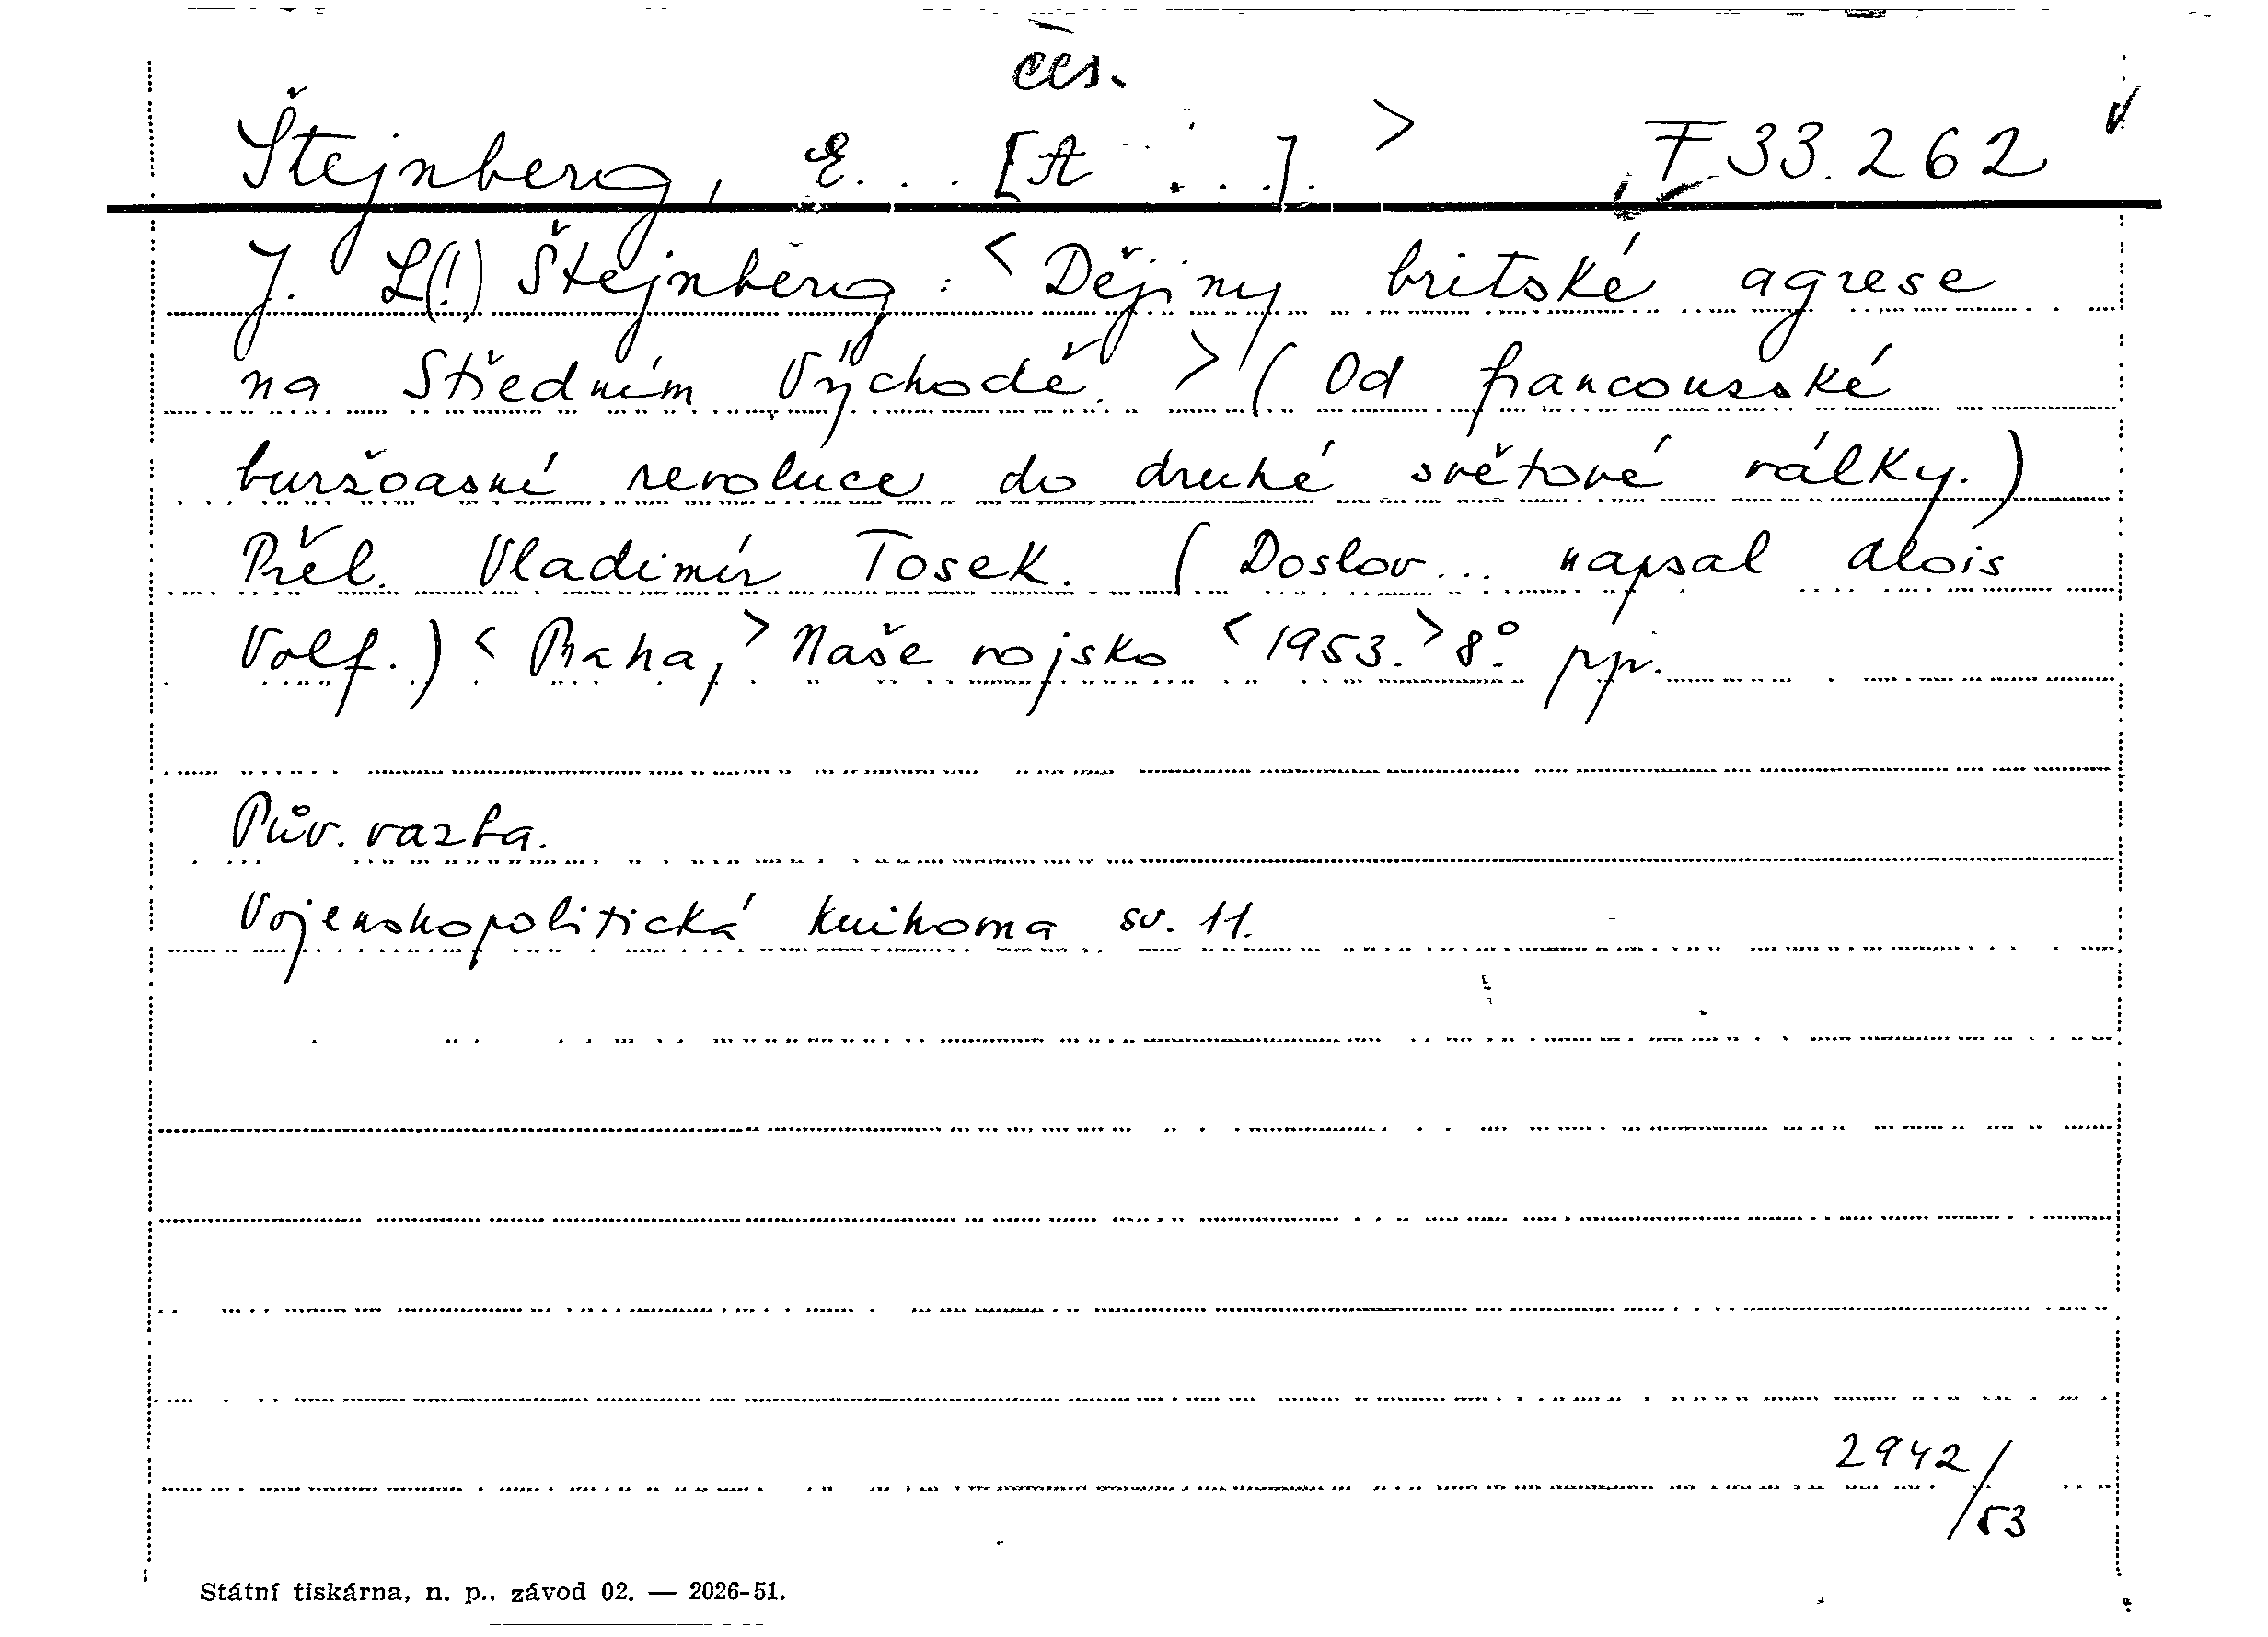 čes.
Štejnberg, E... [A...]. > F 33.262
J. L(!) Štejnberg: < Dějiny britské agrese
na Středním Východě. > ( Od francouzské
buržoasní revoluce do druhé světové války.)
Přel. Vladimír Tosek. ( Doslov... napsal Alois
Volf.) < Praha, > Naše vojsko < 1953. > 8°. pp.
Pův. vazba.
Vojenskopolitická knihovna sv. 11.
2942/
53
Státní tiskárna, n. p., závod 02. — 2026-51.